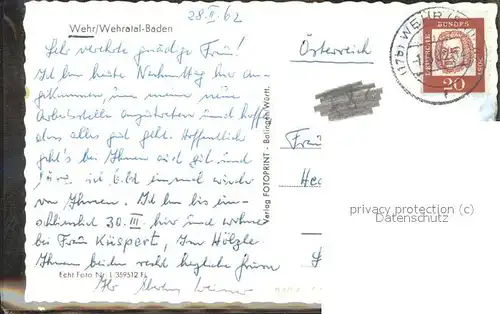 28.II.62
Wehr/Wehratal-Baden
Sehr verehrte gnädige Frau!
Ich bin heute Nachmittag hier an-
gekommen, um meine neue
Arbeitsstelle anzutreten und hoffe
dass alles gut geht. Hoffentlich
geht's bei Ihnen auch gut und
höre ich bald einmal wieder
von Ihnen. Ich bin bis ein-
schliesslich 30. III. hier und wohne
bei Frau Küspert, Im Hölzle
Ihnen beiden recht herzliche Grüsse
Ihr
Echt Foto Nr. L 359512 Fi
Verlag FOTOPRINT - Balingen Württ.
Österreich
(17b) WEHR (BADEN)
DEUTSCHE BUNDESPOST
20
Frau
He
privacy protection (c)
Datenschutz